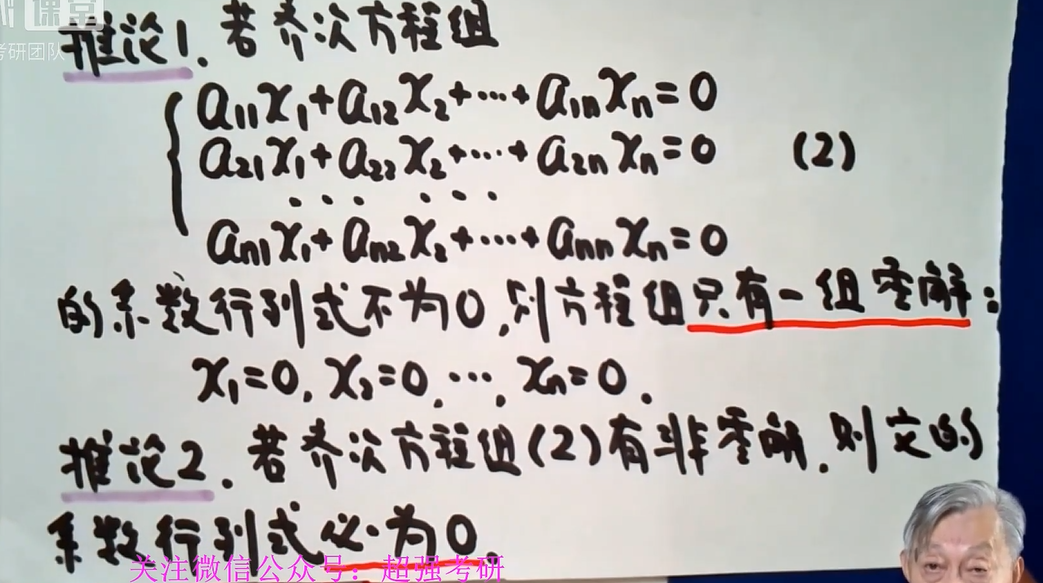 课堂
考研团队
推论1. 若齐次方程组
a₁₁x₁+a₁₂x₂+⋯+a₁ₙxₙ=0
a₂₁x₁+a₂₂x₂+⋯+a₂ₙxₙ=0 (2)
⋯⋯
aₙ₁x₁+aₙ₂x₂+⋯+aₙₙxₙ=0
的系数行列式不为0,则方程组只有一组零解:
x₁=0, x₂=0, ⋯, xₙ=0.
推论2. 若齐次方程组(2)有非零解,则它的
系数行列式必为0.
关注微信公众号：超强考研